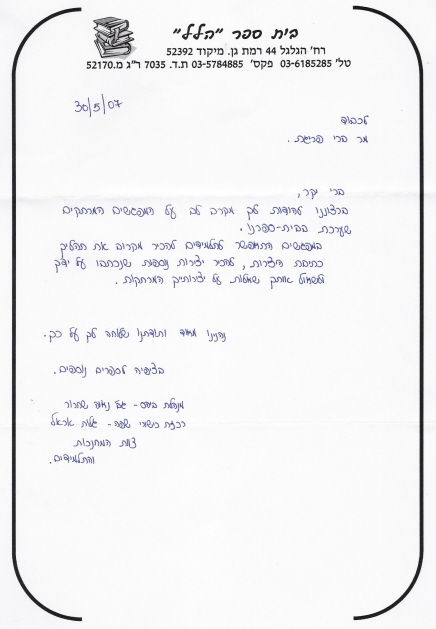 בית ספר "הלל"
רח' הגלגל 44 רמת גן. מיקוד 52392
טל' 03-6185285 פקס' 03-5784885 ת.ד. 7035 ר"ג מ.52170
30/5/07
לכבוד
מר ברי פריגת.
ברי יקר,
ברצוננו להודות לך מקרב לב על המפגשים המרתקים
שערכת בבית-ספרנו.
במפגשים התאפשר לתלמידים להכיר מקרוב את תהליך
כתיבת היצירות, להכיר יצירות נוספות שנכתבו על ידך
ולשאול אותך שאלות על יצירותיך המרתקות.
נהנינו מאוד ותודתנו שלוחה לך על כך.
בציפיה לספרים נוספים.
מנהלת ביה"ס - גב' נחמה שחרור
רכזת כישורי שפה - גלית אראל
צוות המחנכות
והתלמידים.